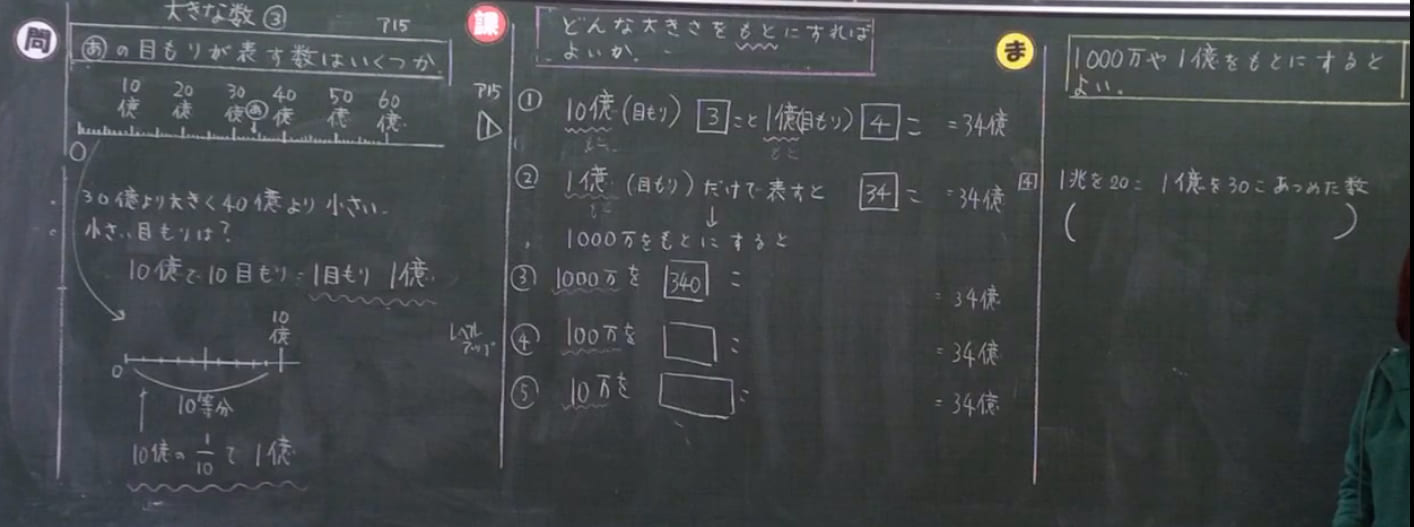 大きな数③
P15
問
あの目もりが表す数はいくつか
10億 20億 30億 あ 40億 50億 60億
0
30億より大きく40億より小さい
小さい目もりは?
10億で10目もり=1目もり 1億
10億
0
10等分
10億の1/10で1億
課
どんな大きさをもとにすれば
よいか。
P15
1
① 10億(目もり) 3 こと1億(目もり) 4 こ =34億
もと もと
② 1億(目もり)だけで表すと 34 こ =34億
もと ↓
1000万をもとにすると
③ 1000万を 340 こ =34億
レベルアップ
④ 100万を こ =34億
⑤ 10万を こ =34億
ま
1000万や1億をもとにすると
よい。
4 1兆を20こ 1億を30こあつめた数
( )